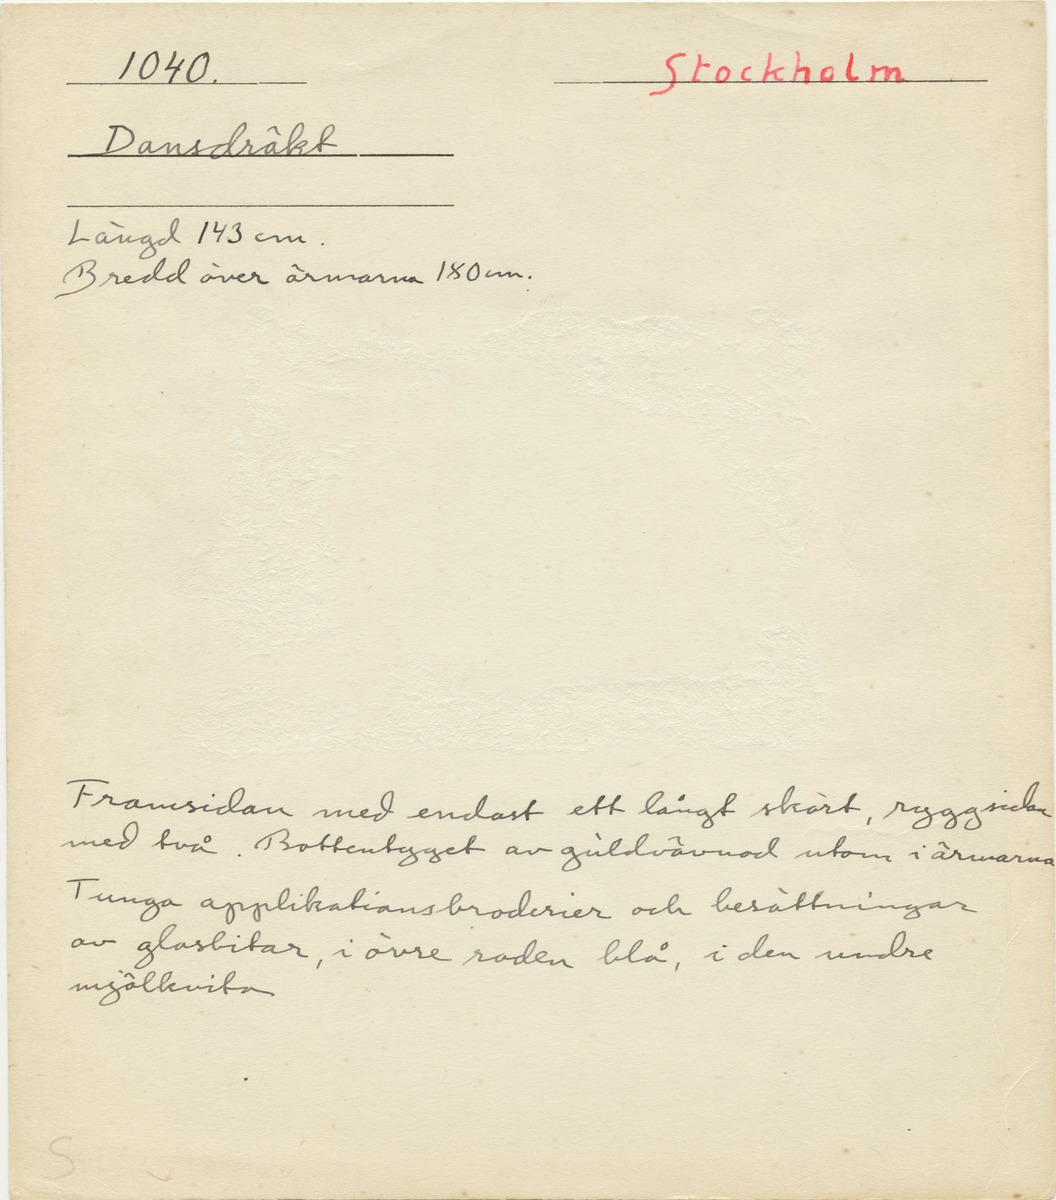 1040.
Stockholm
Dansdräkt
Längd 143 cm.
Bredd över ärmarna 180 cm.
Framsidan med endast ett långt skört, ryggsidan
med två. Bottentyget av guldvävnad utom i ärmarna
Tunga applikationsbroderier och besättningar
av glasbitar, i övre raden blå, i den undre
mjölkvita
S